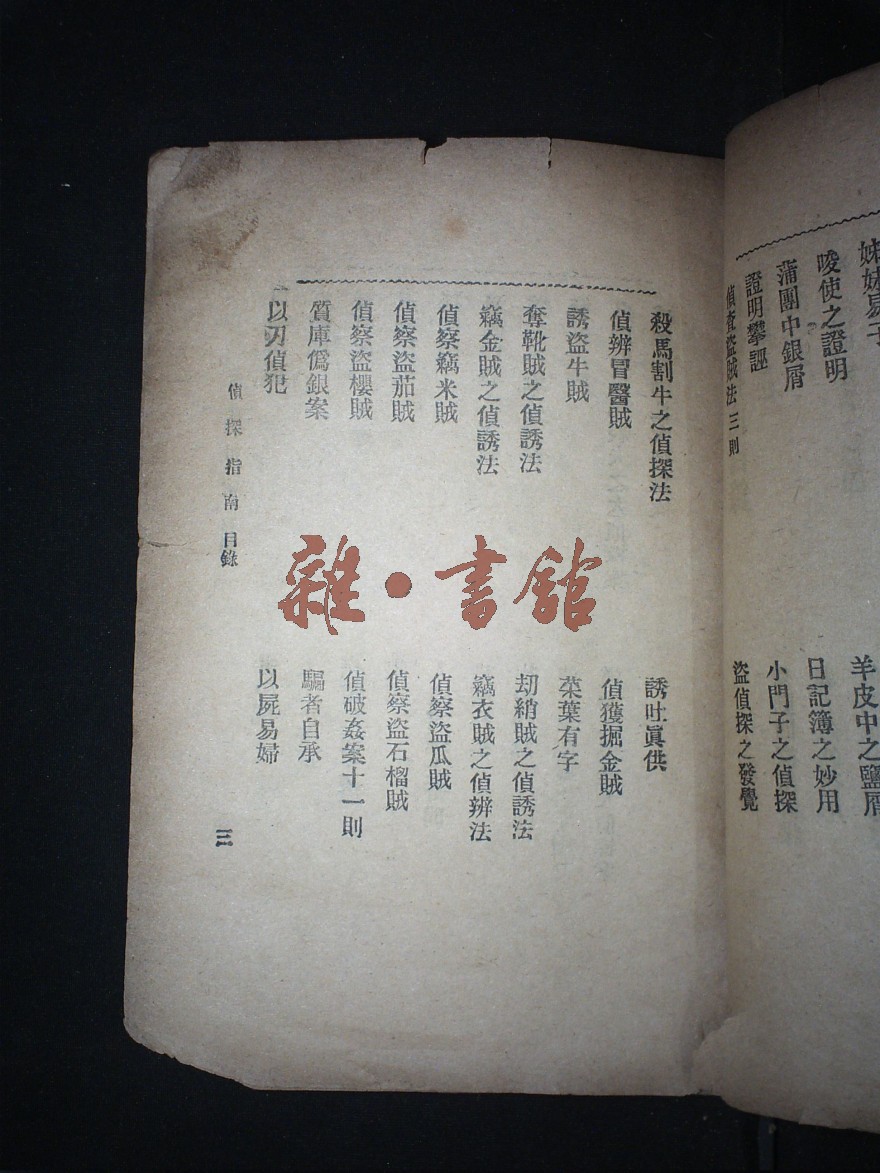 證明攀誣
蒲團中銀屑
唆使之證明
偵査盜賊法三則
羊皮中之鹽屑
日記簿之妙用
小門子之偵探
盜偵探之發覺
殺馬割牛之偵探法
偵辨冒醫賊
誘盜牛賊
奪靴賊之偵誘法
竊金賊之偵誘法
偵察竊米賊
偵察盜茄賊
偵察盜櫻賊
質庫僞銀案
以刃偵犯
誘吐眞供
偵獲掘金賊
菜葉有字
刧綃賊之偵誘法
竊衣賊之偵辨法
偵察盜瓜賊
偵察盜石榴賊
偵破姦案十一則
騙者自承
以屍易婦
偵探指南 目錄
三
雜·書館